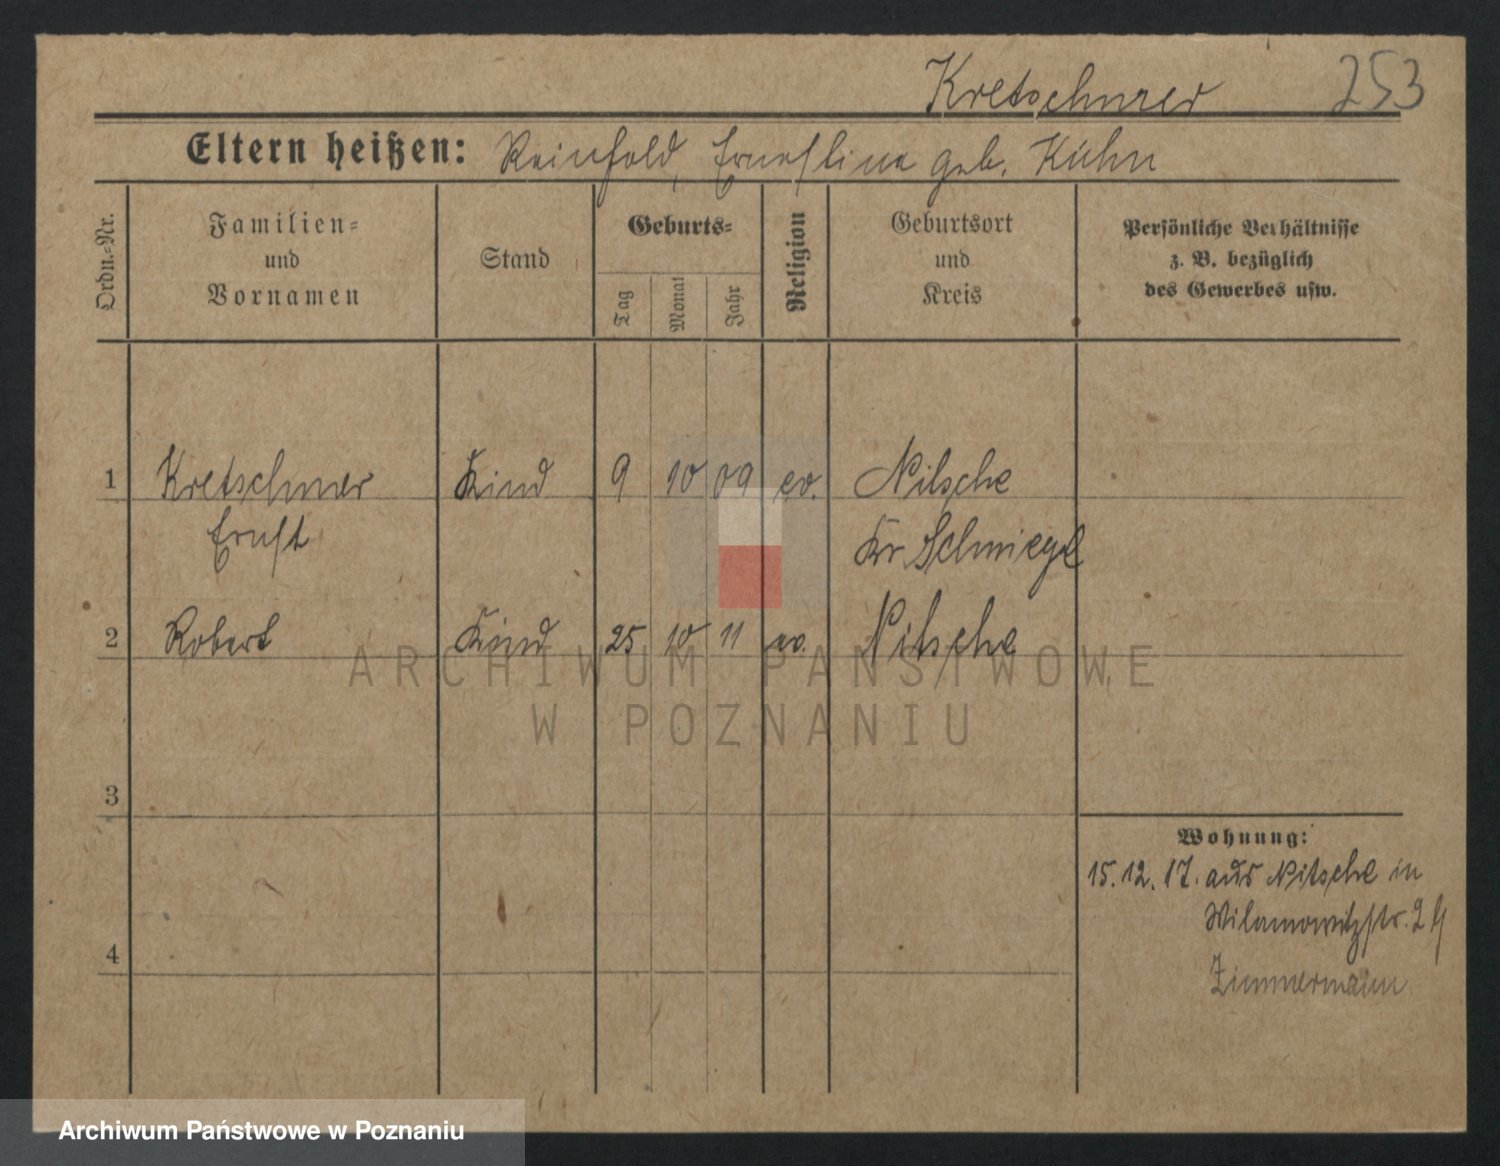 Kretschmer 253
Eltern heißen: Reinhold, Ernestine geb. Kühn
Ordn.-Nr.
Familien- und Vornamen
Stand
Geburts-
Tag
Monat
Jahr
Religion
Geburtsort und Kreis
Persönliche Verhältnisse
z. B. bezüglich
des Gewerbes usw.
1 Kretschmer Kind 9 10 09 ev. Nitsche
Ernst Kr. Schmiegel
2 Robert Kind 25 10 11 ev. Nitsche
ARCHIWUM PAŃSTWOWE
W POZNANIU
3
Wohnung:
15.12.17. aus Nitsche in
Wilamowitzstr. 2
4
Zimmermann
Archiwum Państwowe w Poznaniu